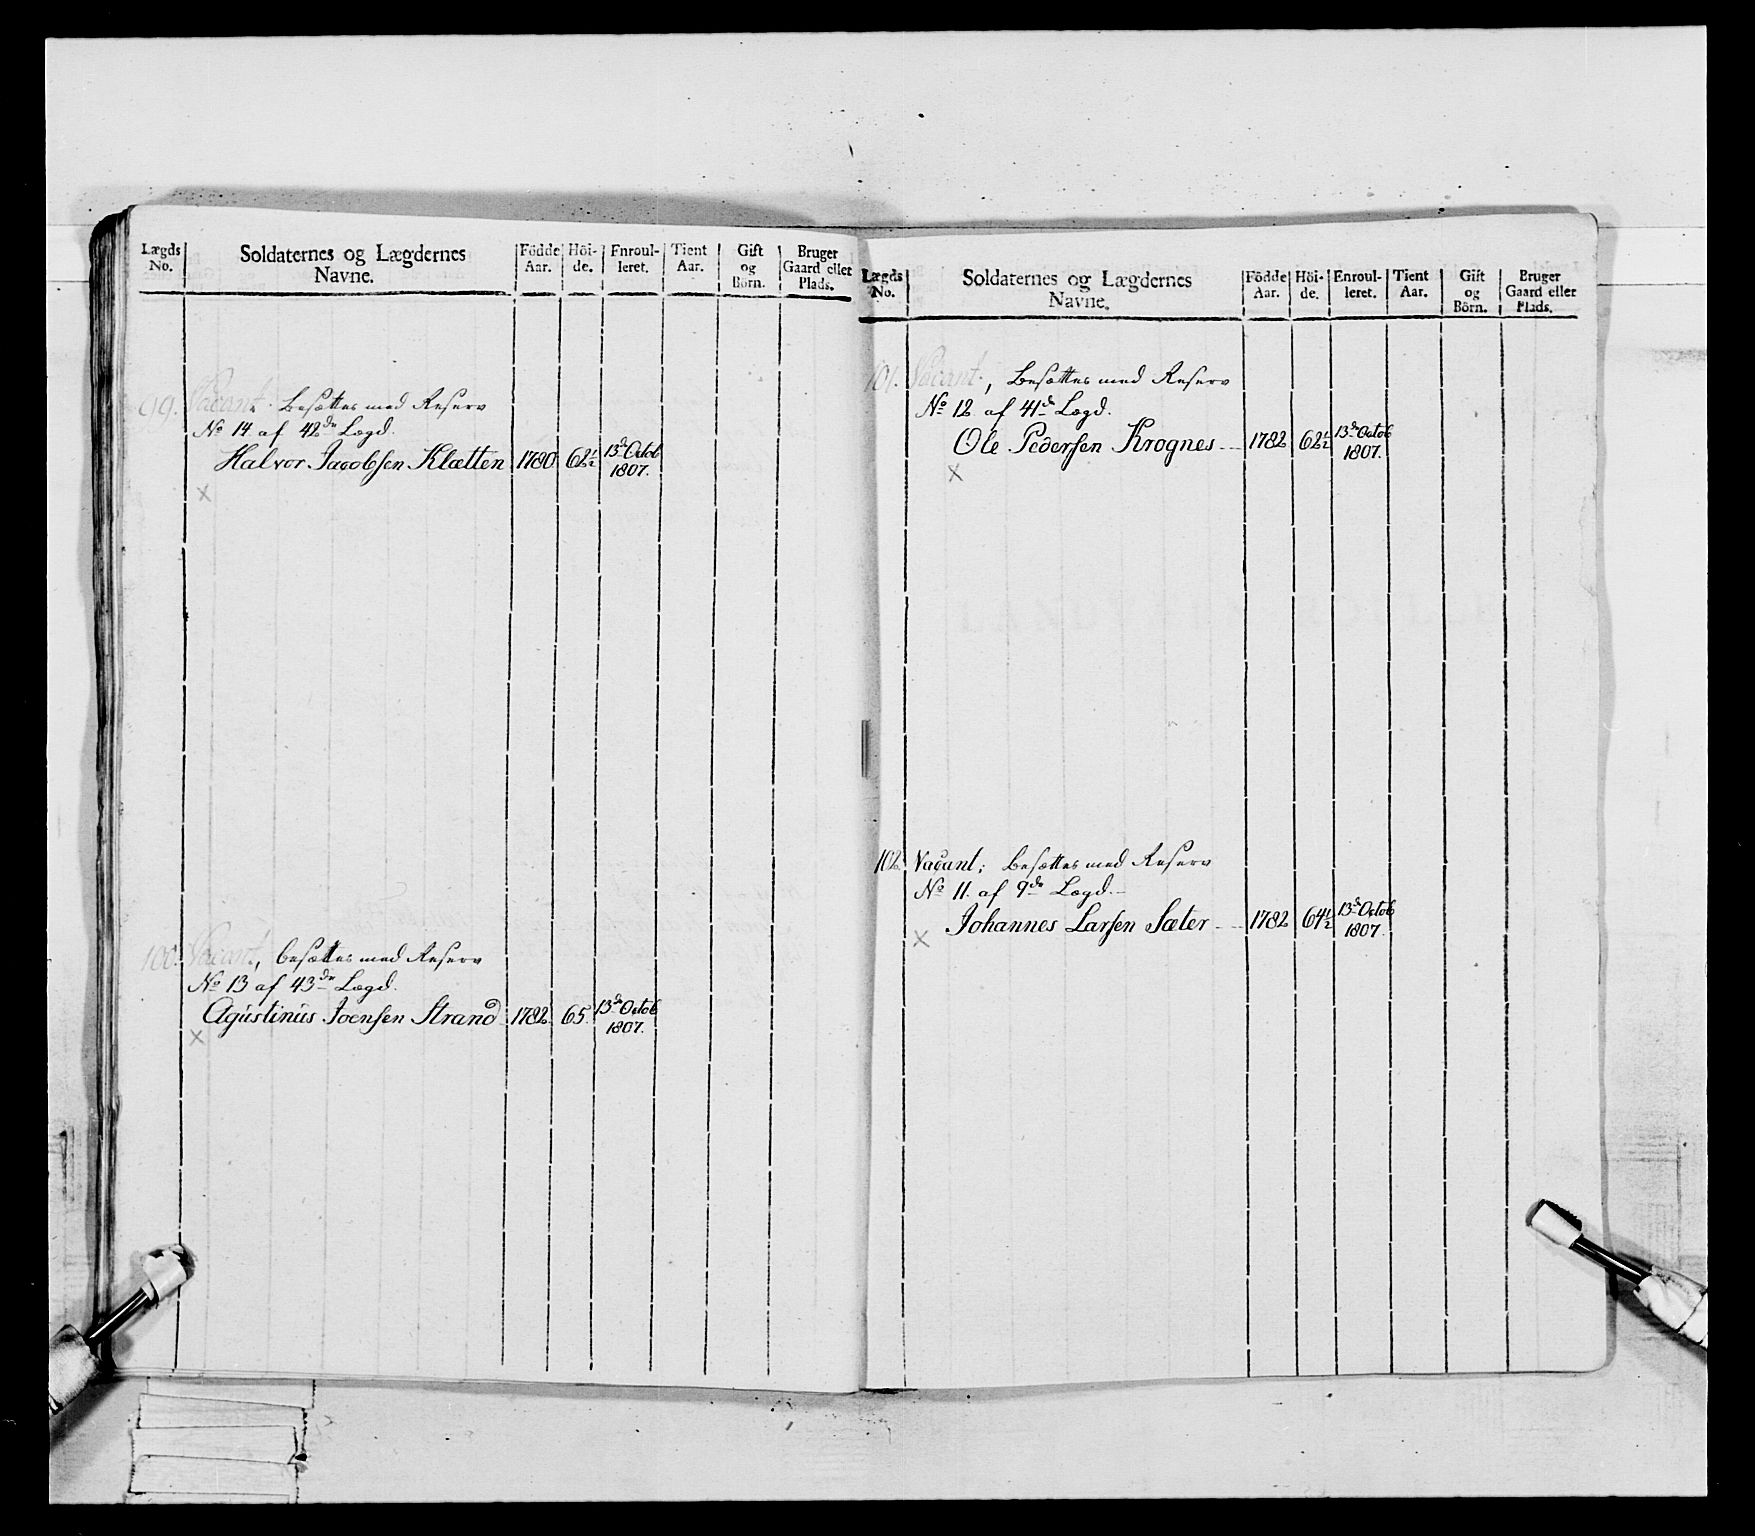 Lægds No. | Soldaternes og Lægdernes Navne. | Födde Aar. | Höi-de. | Enroul-leret. | Tient Aar. | Gift og Börn. | Bruger Gaard eller Plads.
99. Vacant. Besættes med Reserv
No 14 af 42de Lægd.
Halvor Jacobsen Klætten | 1780 | 62½ | 13de Octob 1807.
×
100. Vacant, besættes med Reserv
No 13 af 43de Lægd.
Agustinus Joensen Strand | 1782 | 65. | 13de Octob 1807.
×
Lægds No. | Soldaternes og Lægdernes Navne. | Födde Aar. | Höi-de. | Enroul-leret. | Tient Aar. | Gift og Börn. | Bruger Gaard eller Plads.
101. Vacant, Besættes med Reserv
No 12 af 41de Lægd.
Ole Pedersen Krognes | 1782 | 62½ | 13de Octob 1807.
×
102. Vacant; Besættes med Reserv
No 11. af 9de Lægd.
Johannes Larsen Sæter | 1782 | 64½ | 13de Octob 1807.
×